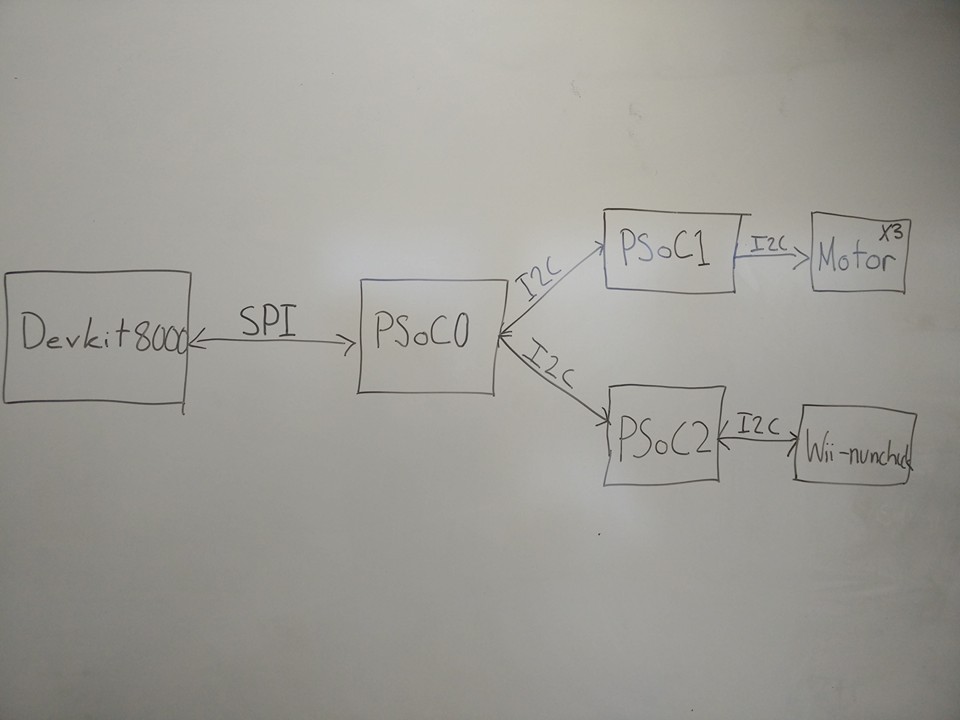 Devkit8000
SPI
PSoC0
I2C
PSoC1
I2C
Motor
X3
I2C
PSoC2
I2C
Wii-nunchuck